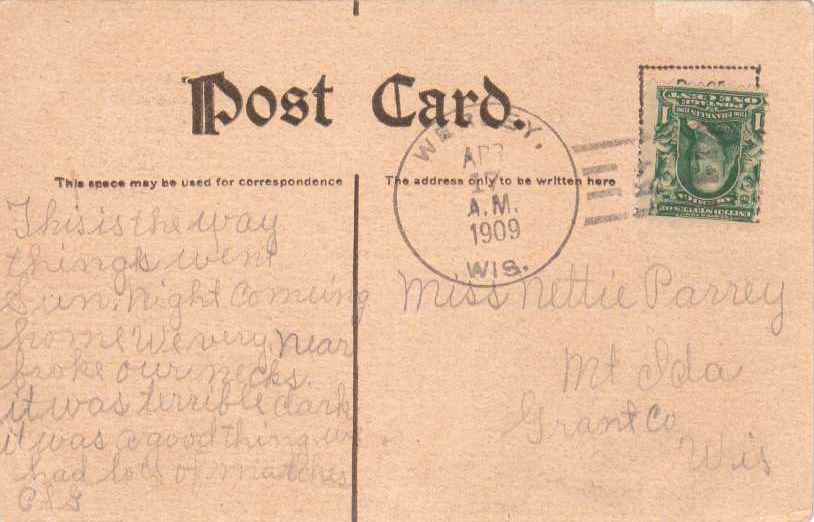 Post Card.
This space may be used for correspondence
The address only to be written here
APR
17
A.M.
1909
WIS.
ONE CENT
POSTAGE
1 1
UNITED STATES OF
AMERICA
This is the way
things went
Sun. Night Comeing
home We very near
broke our necks.
it was terrible dark
it was a good thing we
had lots of matches
Miss Nettie Parrey
Mt Ida
Grant Co
Wis